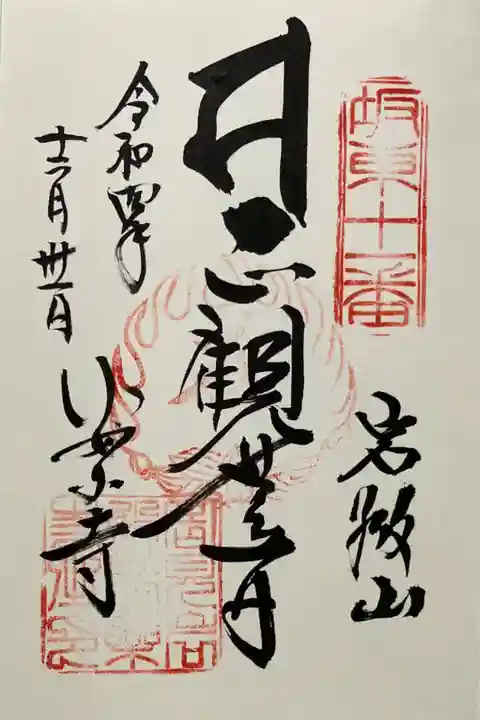 坂東十一番
岩殿山
正観世音
令和四年
十二月卅一日
安楽寺